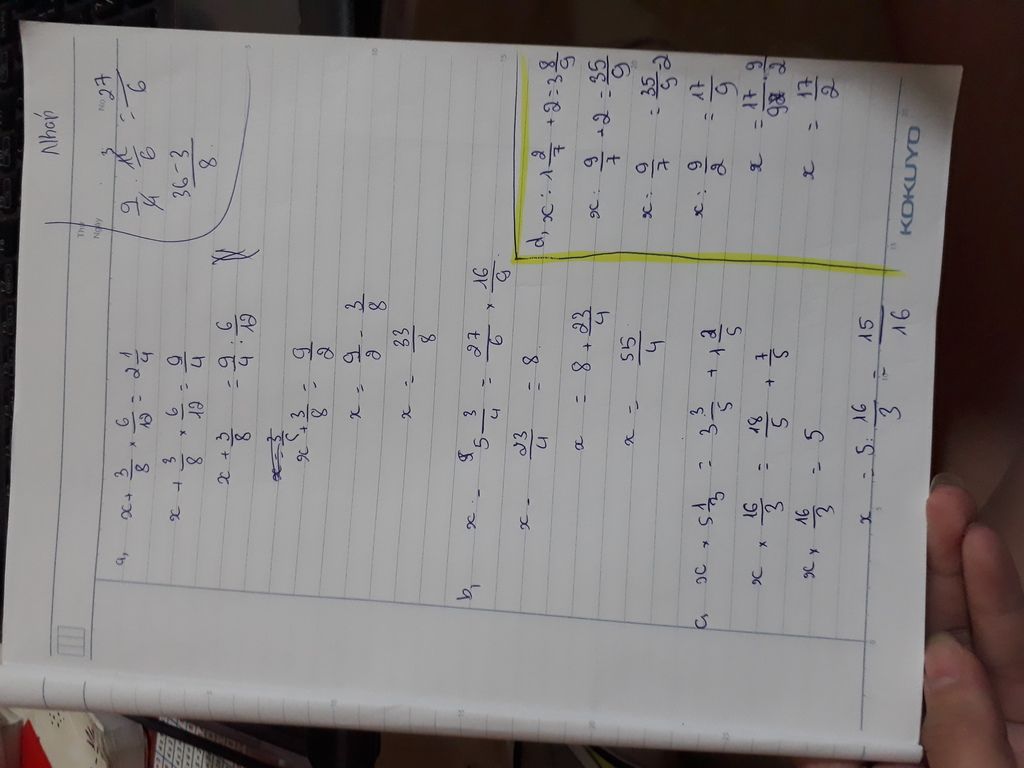 Nháp
Thứ
Ngày
No.
9/4 : 3/6 = 27/6
36-3/8
a, x + 3/8 × 6/12 = 2 1/4
x + 3/8 × 6/12 = 9/4
x + 3/8 = 9/4 : 6/12
x + 3/8 = 9/2
x = 9/2 - 3/8
x = 33/8
b, x - 5 3/4 = 27/6 × 16/9
x - 23/4 = 8
x = 8 + 23/4
x = 55/4
c, x × 5 1/3 = 3 3/5 + 1 2/5
x × 16/3 = 18/5 + 7/5
x × 16/3 = 5
x = 5 : 16/3 = 15/16
d, x : 1 2/7 + 2 = 3 8/9
x : 9/7 + 2 = 35/9
x : 9/7 = 35/9 - 2
x : 9/2 = 17/9
x = 17/9 . 9/2
x = 17/2
KOKUYO